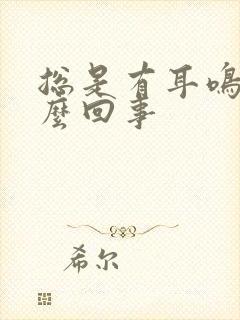 总是有耳鸣
麼回事
希尔